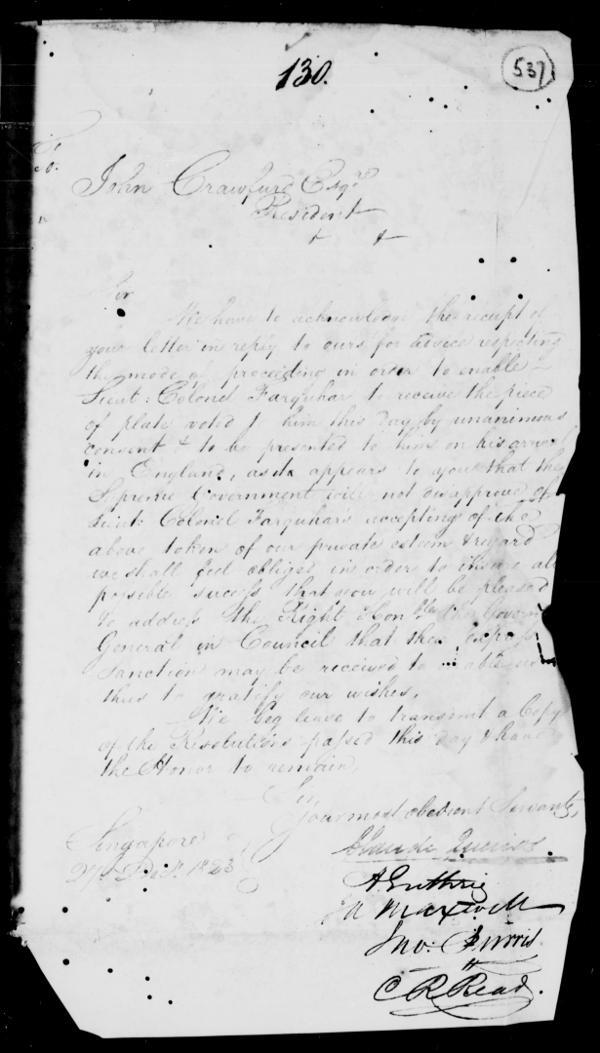 130.
537
To.
John Crawfurd Esqre
Resident
Sir
We have to acknowledge the receipt of
your letter in reply to ours for advice respecting
the mode of proceeding in order to enable
Lieut: Colonel Farquhar to receive the piece
of plate voted to him this day by unanimous
consent & to be presented to him on his arrival
in England, as it appears to you that the
Supreme Government will not disapprove of
Lieut: Colonel Farquhar's accepting of the
above token of our private esteem & regard
we shall feel obliged in order to insure all
possible success that you will be pleased
to address the Right Honble the Governor
General in Council that their express
sanction may be received to enable us
thus to gratify our wishes.
We beg leave to transmit a Copy
of the Resolutions passed this day & have
the Honor to remain,
Sir,
Your most obedient Servants,
Singapore
Decr. 1823
Claude Queiros
A Guthrie
Maxwell
Jno:
C R Read.